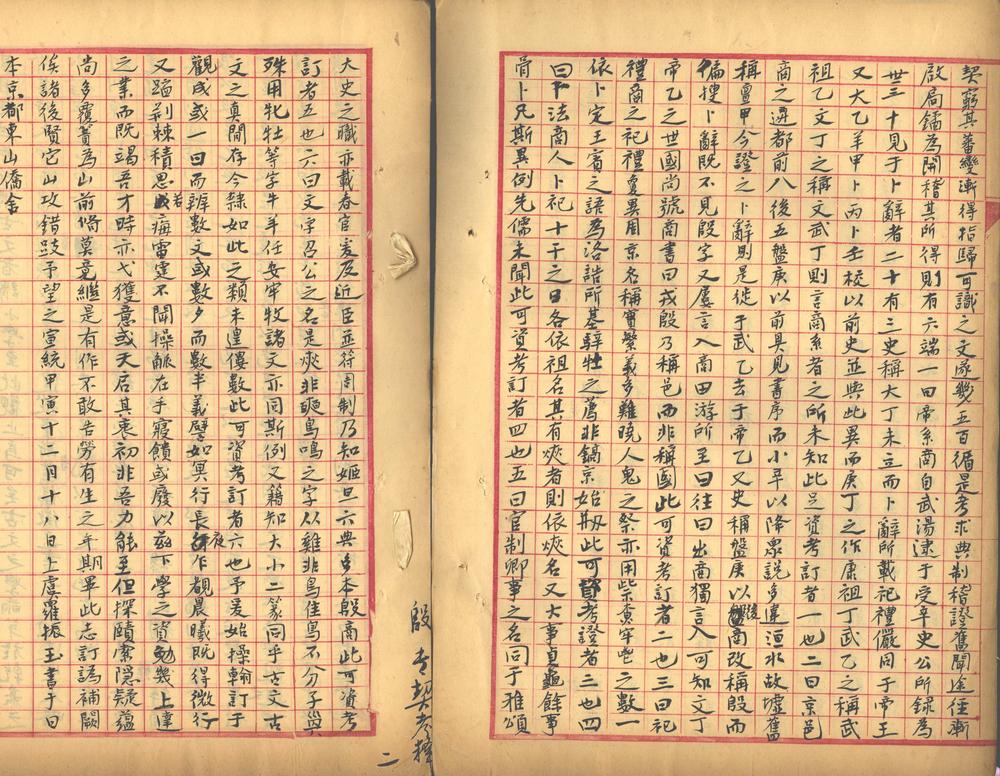 契窮其蕃變漸得指歸可識之文遂幾五百循是考求典制稽證舊聞途徑漸
啟扃鐍為開稽其所得則有六端一曰帝系商自武湯逮于受辛史公所錄為
世三十見于卜辭者二十有三史稱大丁未立而卜辭所載祀禮儼同于帝王
又大乙羊甲卜丙卜壬校以前史並與此異而庚丁之作康祖丁武乙之稱武
祖乙文丁之稱文武丁則言商系者之所未知此足資考訂者一也二曰京邑
商之遷都前八後五盤庚以前具見書序而小辛以降眾說多違洹水故墟舊
稱亶甲今證之卜辭則是徙于武乙去于帝乙又史稱盤庚以後商改稱殷而
徧搜卜辭既不見殷字又屢言入商田游所至曰往曰出商獨言入可知文丁
帝乙之世國尚號商書曰戎殷乃稱邑而非稱國此可資考訂者二也三曰祀
禮商之祀禮夐異周京名稱實繁義多難曉人鬼之祭亦用柴尞牢鬯之數一
依卜定王賓之語為洛誥所基騂牡之薦非鎬京始刱此可資考證者三也四
曰卜法商人卜祀十干之日各依祖名其有爽者則依爽名又大事貞龜餘事
骨卜凡斯異例先儒未聞此可資考訂者四也五曰官制卿事之名同于雅頌
大史之職亦載春官爰及近臣並符周制乃知姬旦六典多本殷商此可資考
訂者五也六曰文字召公之名是奭非奭鳥鳴之字从雞非鳥隹鳥不分子㠱
殊用牝牡等字牛羊任安牢牧諸文亦同斯例又藉知大小二篆同乎古文古
文之真間存今隸如此之類未遑僂數此可資考訂者六也予爰始操翰訂于
觀成或一日而辨數文或數夕而數半義譬如冥行長夜乍覩晨曦既得微行
又蹈荊棘積思若痗雷霆不聞操觚在手寢饋或廢以茲下學之資勉幾上達
之業而既竭吾才時亦弋獲意或天启其衷初非吾力能至但探賾索隱疑蘊
尚多覆蕢為山前脩莫竟繼是有作不敢告勞有生之年期畢此志訂譌補闕
俟諸後賢它山攻錯跂予望之宣統甲寅十二月十八日上虞羅振玉書于日
本京都東山僑舍
殷虛書契考釋
二